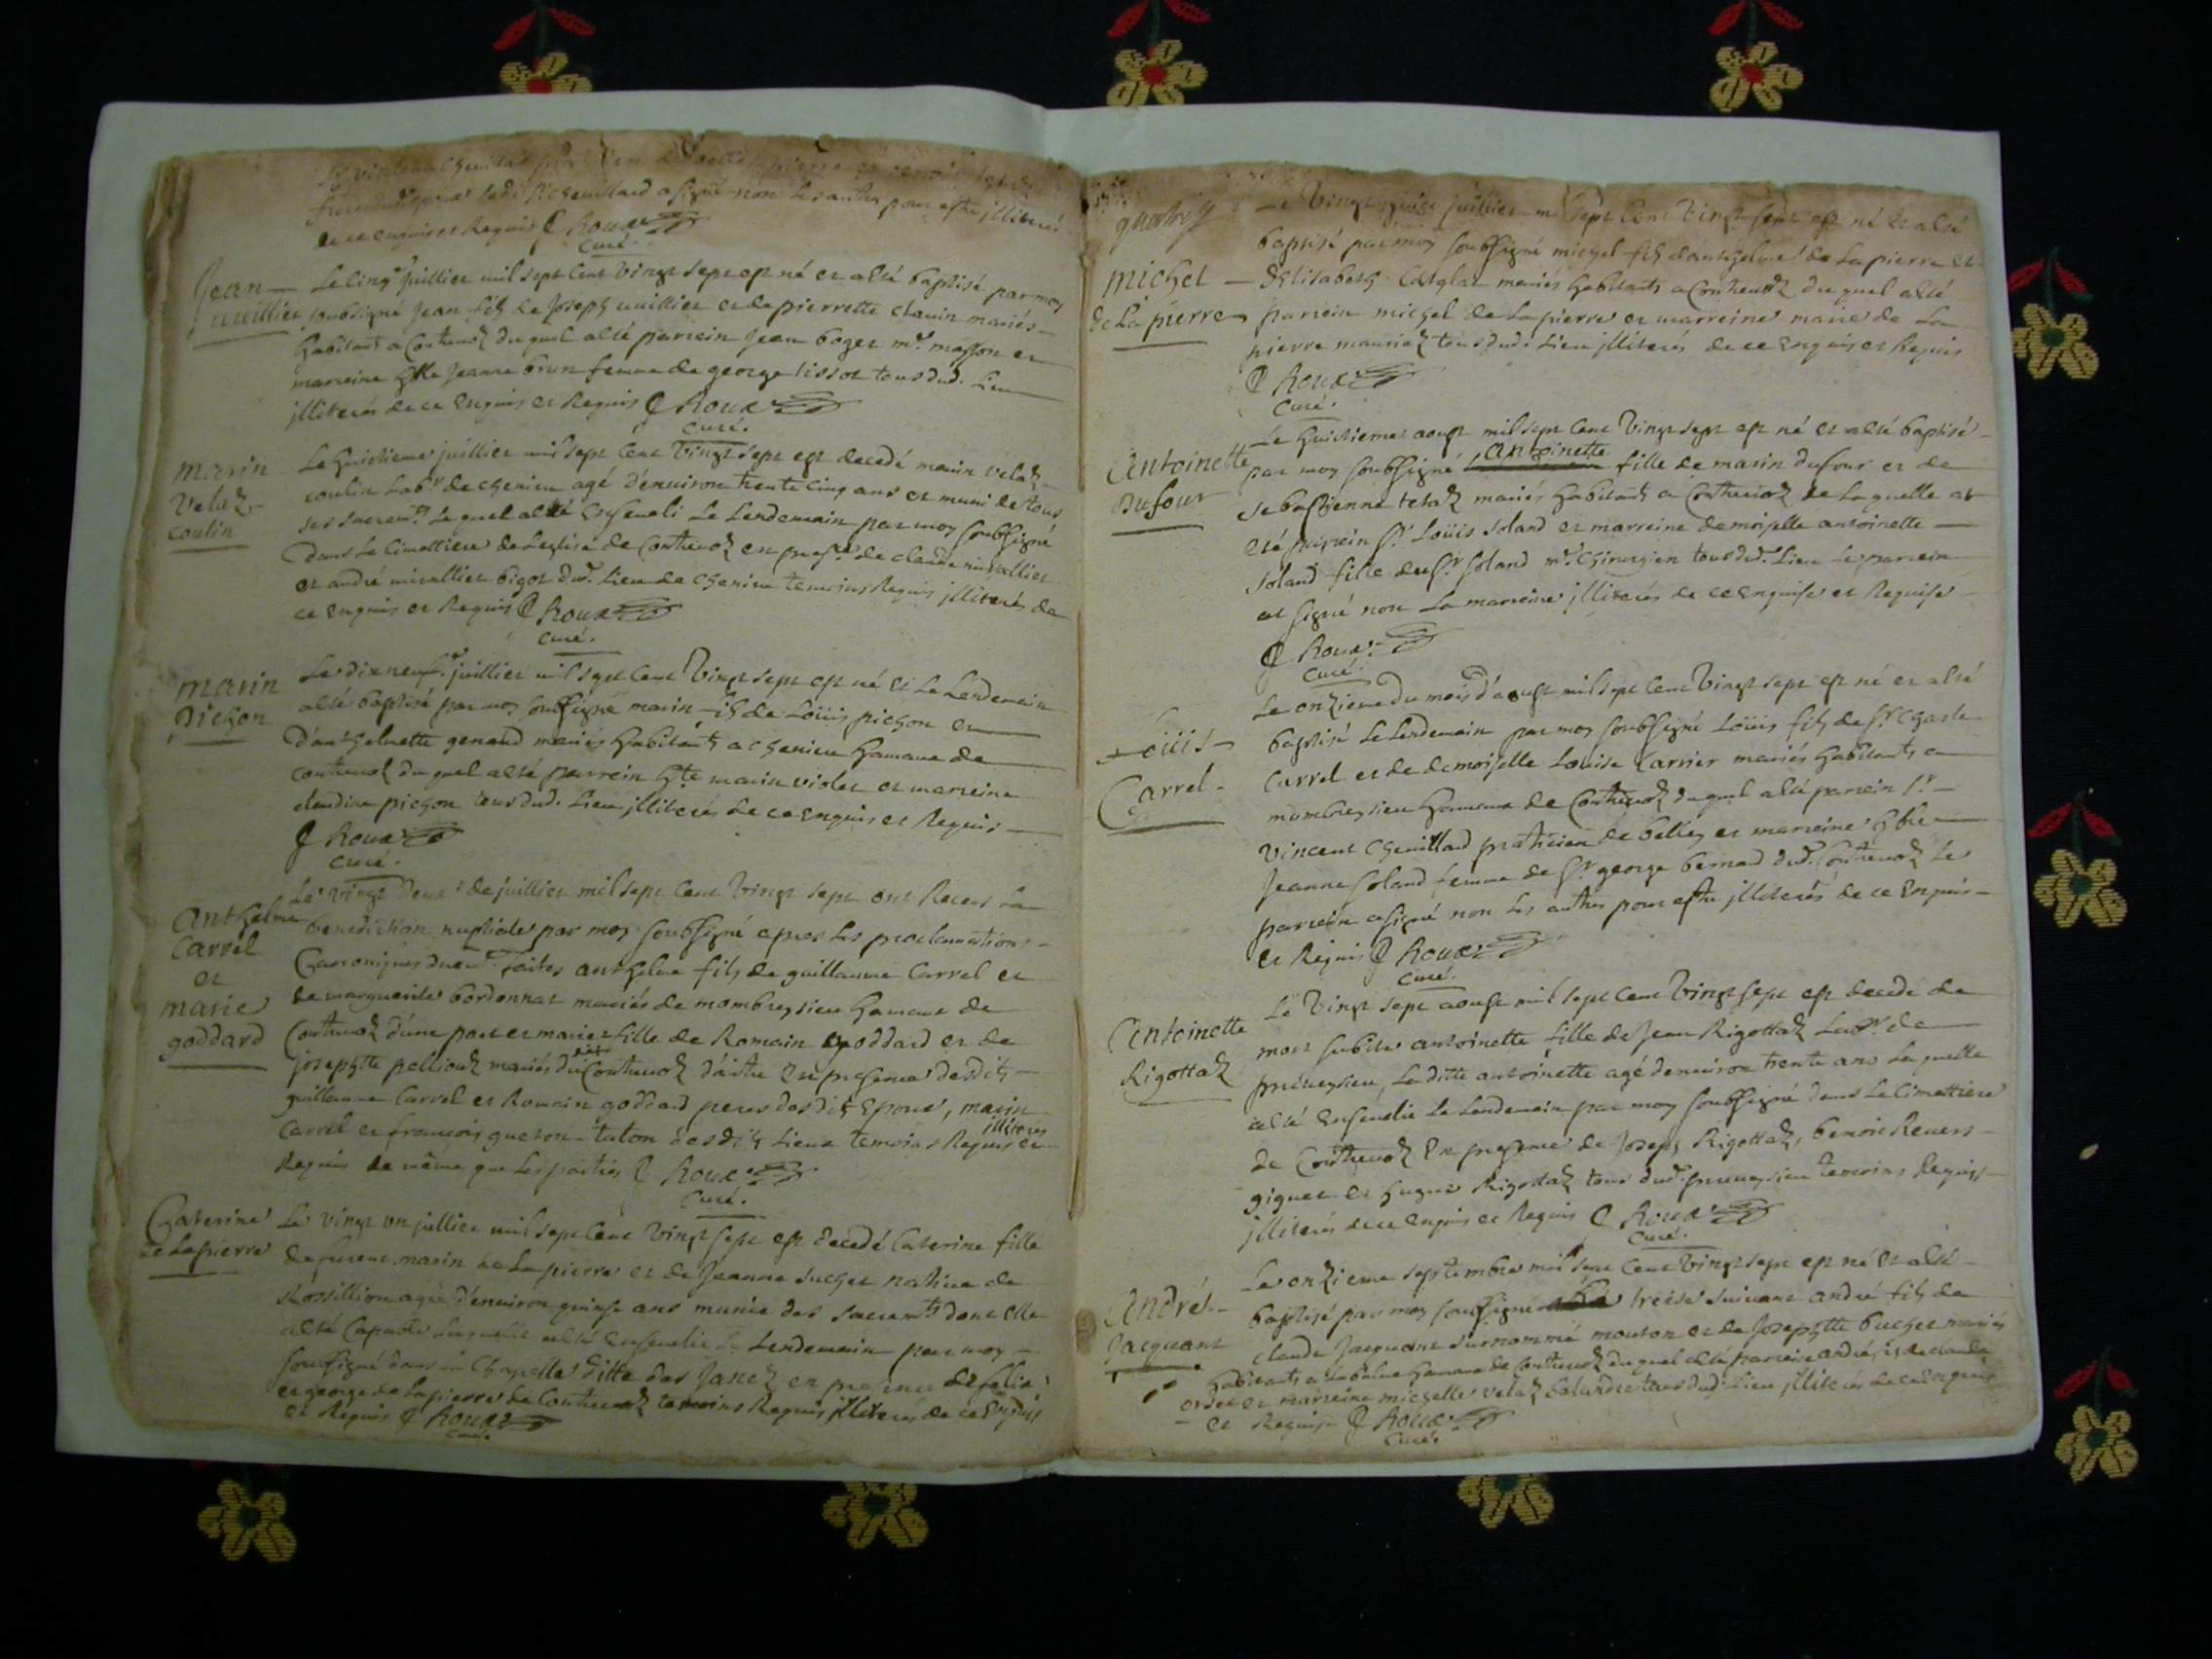 ledit Sr. Chevillard a signé non les autres pour estre jlliterés
de ce enquis et Requis Roux
curé.
Jean
vuillier
Le cinqe juillier mil sept cent vingt sept est né et a esté baptisé par moy
soubsigné Jean fils de Joseph vuillier et de pierrette clavin mariés
habitants a Contrevoz du quel a esté parrein Jean boget me. masson et
marreine hble Jeanne brun femme de george tissot tous dud. Lieu
jlliterés de ce Enquis et Requis Roux
curé.
marin
velaz
coulin
Le huictieme juillier mil sept cent vingt sept est decedé marin velaz
coulin Labr de chenieu agé d'environ trente cinq ans et muni de tous
ses sacremts Le quel a esté Enseveli Le Lendemain par moy soubsigné
dans Le Cimettiere de Leglise de Contrevoz en presce de claude
et andré bigot dud. Lieu de chenieu temoins Requis jlliterés de
ce enquis et Requis Roux
curé.
marin
pichon
Le dixneufe. juillier mil sept cent vingt sept est né et Le Lendemain
a esté baptisé par moy soussigné marin fils de Loüis pichon et
d'anthelmette genand mariés habitants a chenieu hameau de
contrevoz du quel a esté parrein hble marin violet et marreine
claudine pichon tous dud. Lieu jlliterés de ce enquis et Requis
Roux
curé.
anthelme
Carrel
et
marie
goddard
Le vingt deux de juillier mil sept cent vingt sept ont Receus La
benediction nuptiale par moy soubsigné apres les proclamations
Canoniques duemt. faites anthelme fils de guillaume Carrel et
de marguerite bordonnat mariés de mombreysieu hameau de
Contrevoz d'une part et marie fille de Romain goddard et de
josephtte pellioud mariés dudit Contrevoz d'autre En presence desdits
guillaume Carrel et Romain goddard peres desdits Epoux, marin
Carrel et françois gueton taton desdits Lieux temoins Requis illiteres et
Requis de même que Les parties Roux
Curé.
Caterine
de Lapierre
Le vingt un jullier mil sept cent vingt sept est decedé Caterine fille
de marin de Lapierre et de Jeanne sucher native de
Rossillion agée d'environ quinse ans munie des sacremts dont elle
a esté Capable Laquelle a esté Ensevelie Le Lendemain par moy
soussigné dans la Chapelle ditte des Janez en presence de felix
et george de Lapierre de Contrevoz temoins Requis jlliterés de ce Enquis
et Requis Roux
curé.
michel
de La pierre
Le vingt juillier mil sept cent vingt sept est né et a esté
baptisé par moy soubsigné michel fils d'anthelme de Lapierre et
d'Elisabeth mariés habitants a Contrevoz du quel a esté
parrein michel de Lapierre et marreine marie de La
pierre tous dud. Lieu jlliterés de ce Enquis et Requis
Roux
curé.
Antoinette
Dufour
Le huictieme aoust mil sept cent vingt sept est né et a esté baptisé
par moy soubsigné Antoinette fille de marin dufour et de
sebastienne tetaz mariés habitants a Contrevoz de Laquelle at
esté parrein Sr. Loüis soland et marreine demoiselle antoinette
soland fille du Sr. soland me. Chirurgien tous dud. Lieu Le parrein
at signé non La marreine jlliterés de ce Enquise et Requise
Roux
curé.
Loüis
Carrel
Le onzieme du mois d'aoust mil sept cent vingt sept est né et a esté
baptisé Le Lendemain par moy soubsigné Loüis fils de Sr. Charle
Carrel et de demoiselle Louise Carrier mariés habitants a
mombreysieu hameau de Contrevoz du quel a esté parrein Sr.
vincent chevillard praticien de belley et marreine hble
Jeanne soland femme de Sr. george bernad dud. Contrevoz Le
parrein a signé non Les autres pour estre jlliterés de ce Enquis
et Requis Roux
curé.
Antoinette
Rigottaz
Le vingt sept aoust mil sept cent vingt sept est decedé de
mort subite antoinette fille de Jean Rigottaz Labr de
preveysieu, La ditte antoinette agé d'environ trente ans Laquelle
a esté Ensevelie Le Lendemain par moy soubsigné dans Le Cimettiere
de Contrevoz En presence de Joseph Rigottaz, benoit Revers
giguet et hugue Rigottaz tous dud. preveysieu temoins Requis
jlliterés de ce Enquis et Requis Roux
Curé.
André
Jacquant
Le onzieme septembre mil sept cent vingt sept est né et a esté
baptisé par moy soussigné treise suivant andré fils de
claude Jacquant surnommé mouton et de Josephtte bucher mariés
habitants a Labalme hameau de Contrevoz du quel a esté parrein andré fils de claude
et marreine michelle velaz tous dud. Lieu jlliterés de ce Enquis
et Requis Roux
Curé.